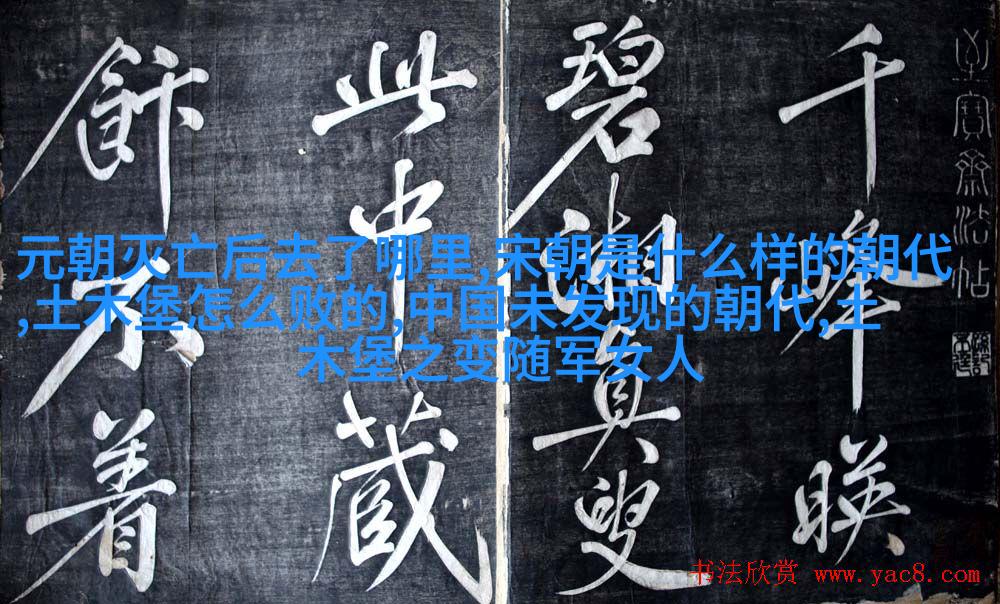 千峰映
碧湘真叟
此中藏
飰不
元朝灭亡后去了哪里,宋朝是什么样的朝代
,土木堡怎么败的,中国未发现的朝代,土
木堡之变随军女人
书法欣赏 www.yac8.com